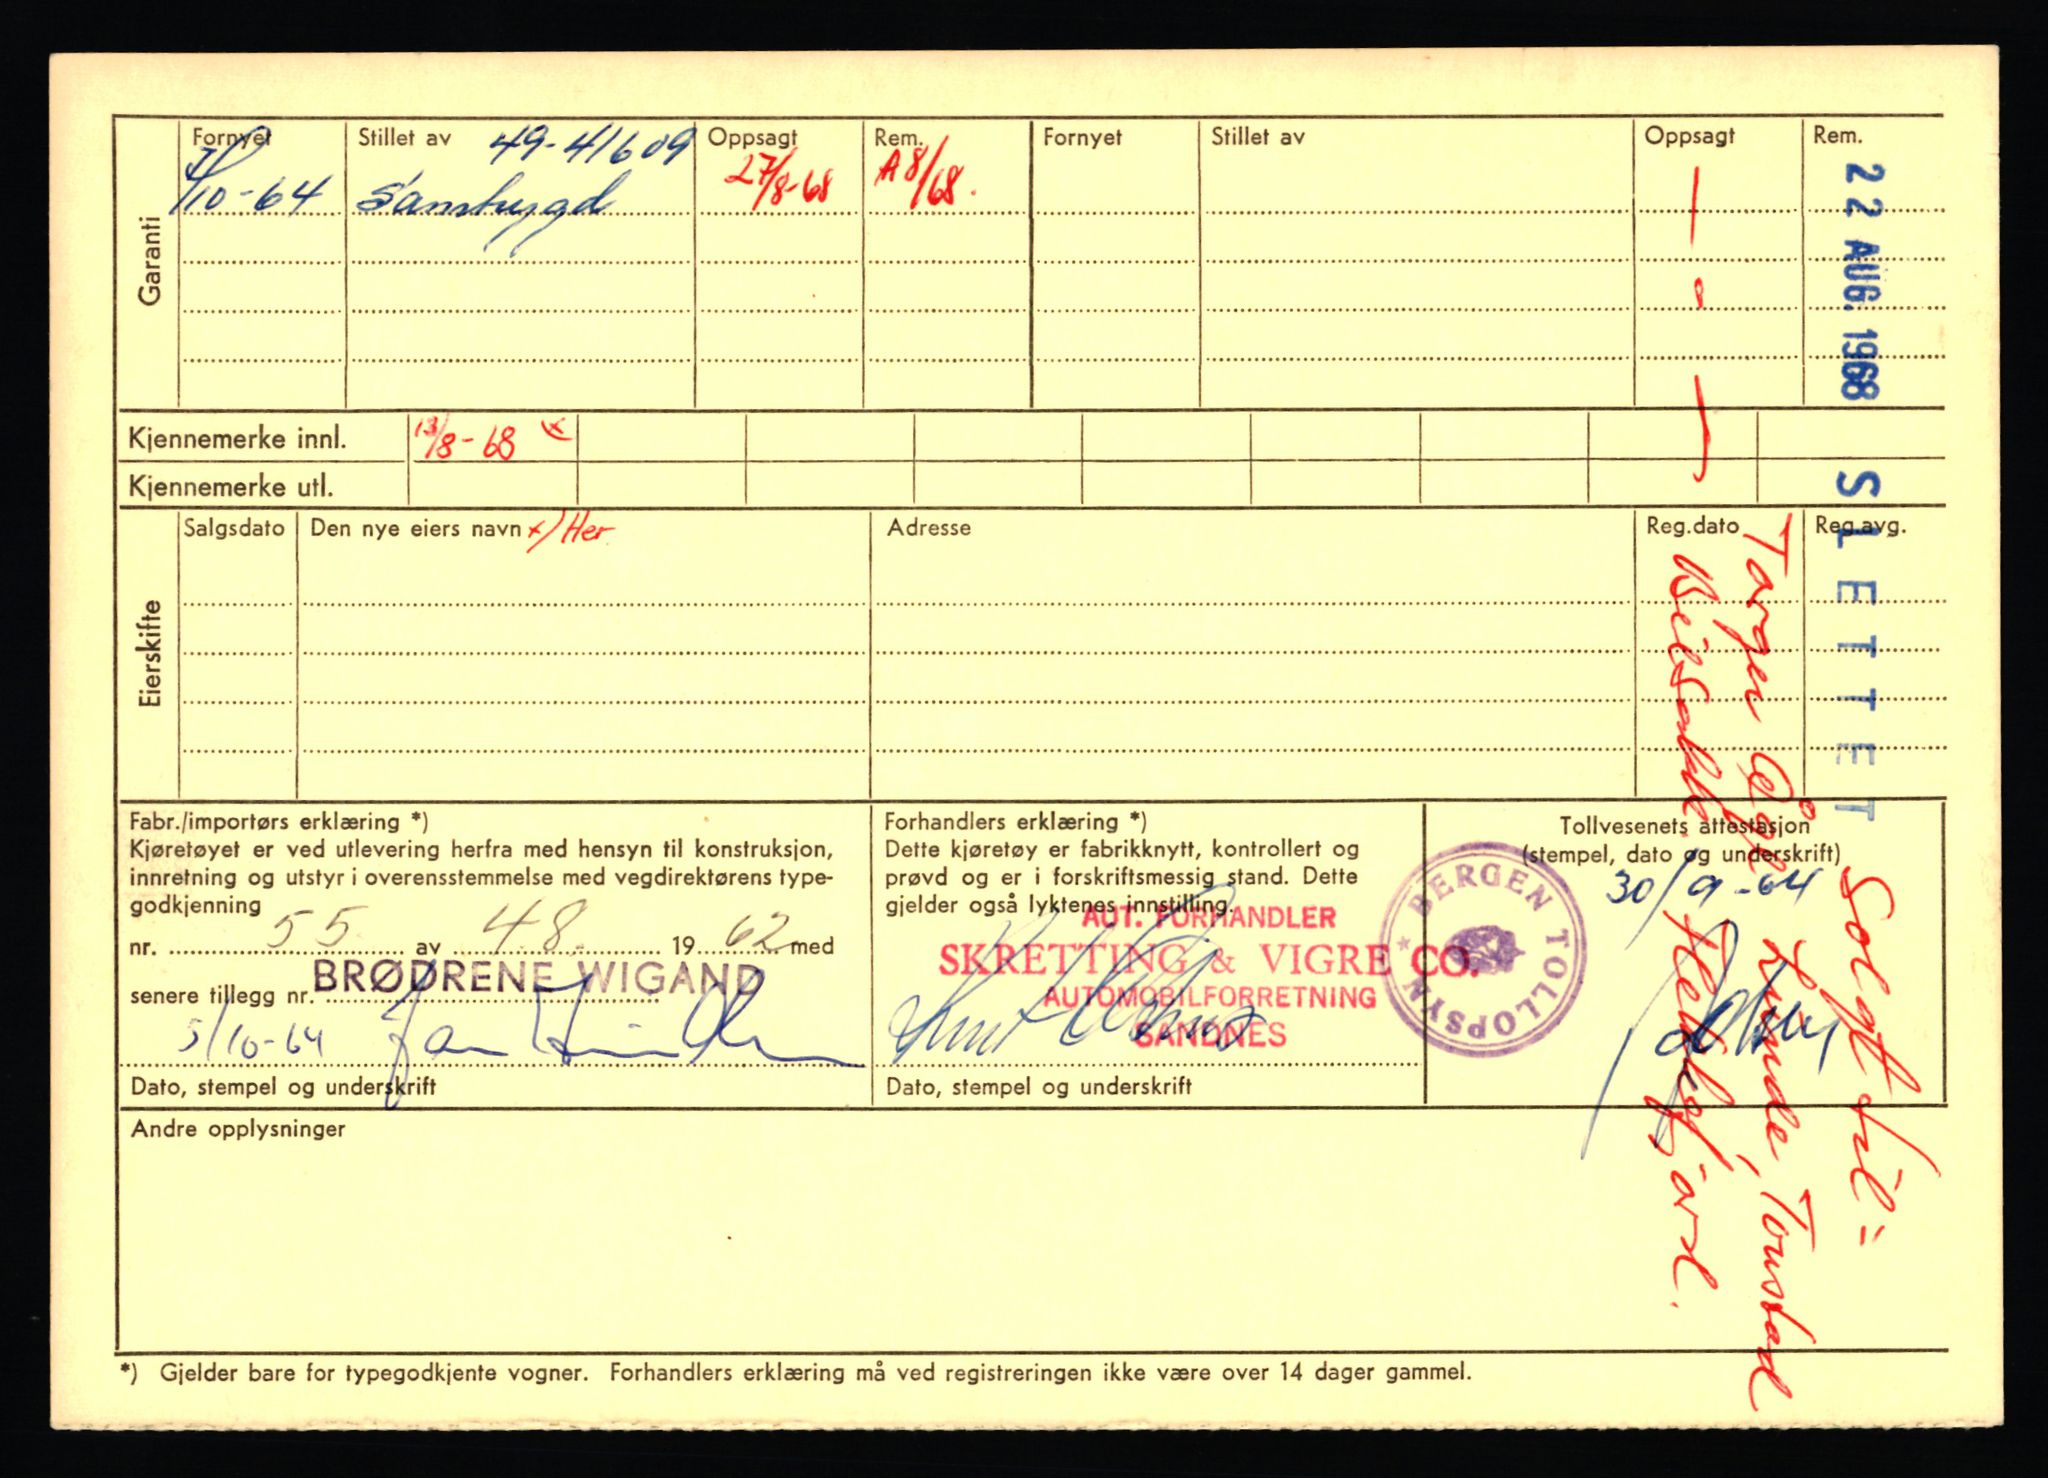 Garanti
Fornyet
Stillet av
49-41609
Oppsagt
Rem.
Fornyet
Stillet av
Oppsagt
Rem.
/10-64
Samtrygd
27/8-68
A8/68.
22 AUG. 1968
SLETTET
Kjennemerke innl.
13/8-68 x
Kjennemerke utl.
Eierskifte
Salgsdato
Den nye eiers navn x) Her
Adresse
Reg.dato
Reg.avg.
Solgt til =
Lunde, Tonstad
Fabr./importørs erklæring *)
Kjøretøyet er ved utlevering herfra med hensyn til konstruksjon,
innretning og utstyr i overensstemmelse med vegdirektørens type-
godkjenning
nr. 55 av 48. 1962 med
BRØDRENE WIGAND
senere tillegg nr.
5/10-64
Dato, stempel og underskrift
Forhandlers erklæring *)
Dette kjøretøy er fabrikknytt, kontrollert og
prøvd og er i forskriftsmessig stand. Dette
gjelder også lyktenes innstilling.
AUT. FORHANDLER
SKRETTING & VIGRE CO.
AUTOMOBILFORRETNING
SANDNES
Dato, stempel og underskrift
Tollvesenets attestasjon
(stempel, dato og underskrift)
30/9-64
BERGEN TOLLOPSYN
Andre opplysninger
*) Gjelder bare for typegodkjente vogner. Forhandlers erklæring må ved registreringen ikke være over 14 dager gammel.